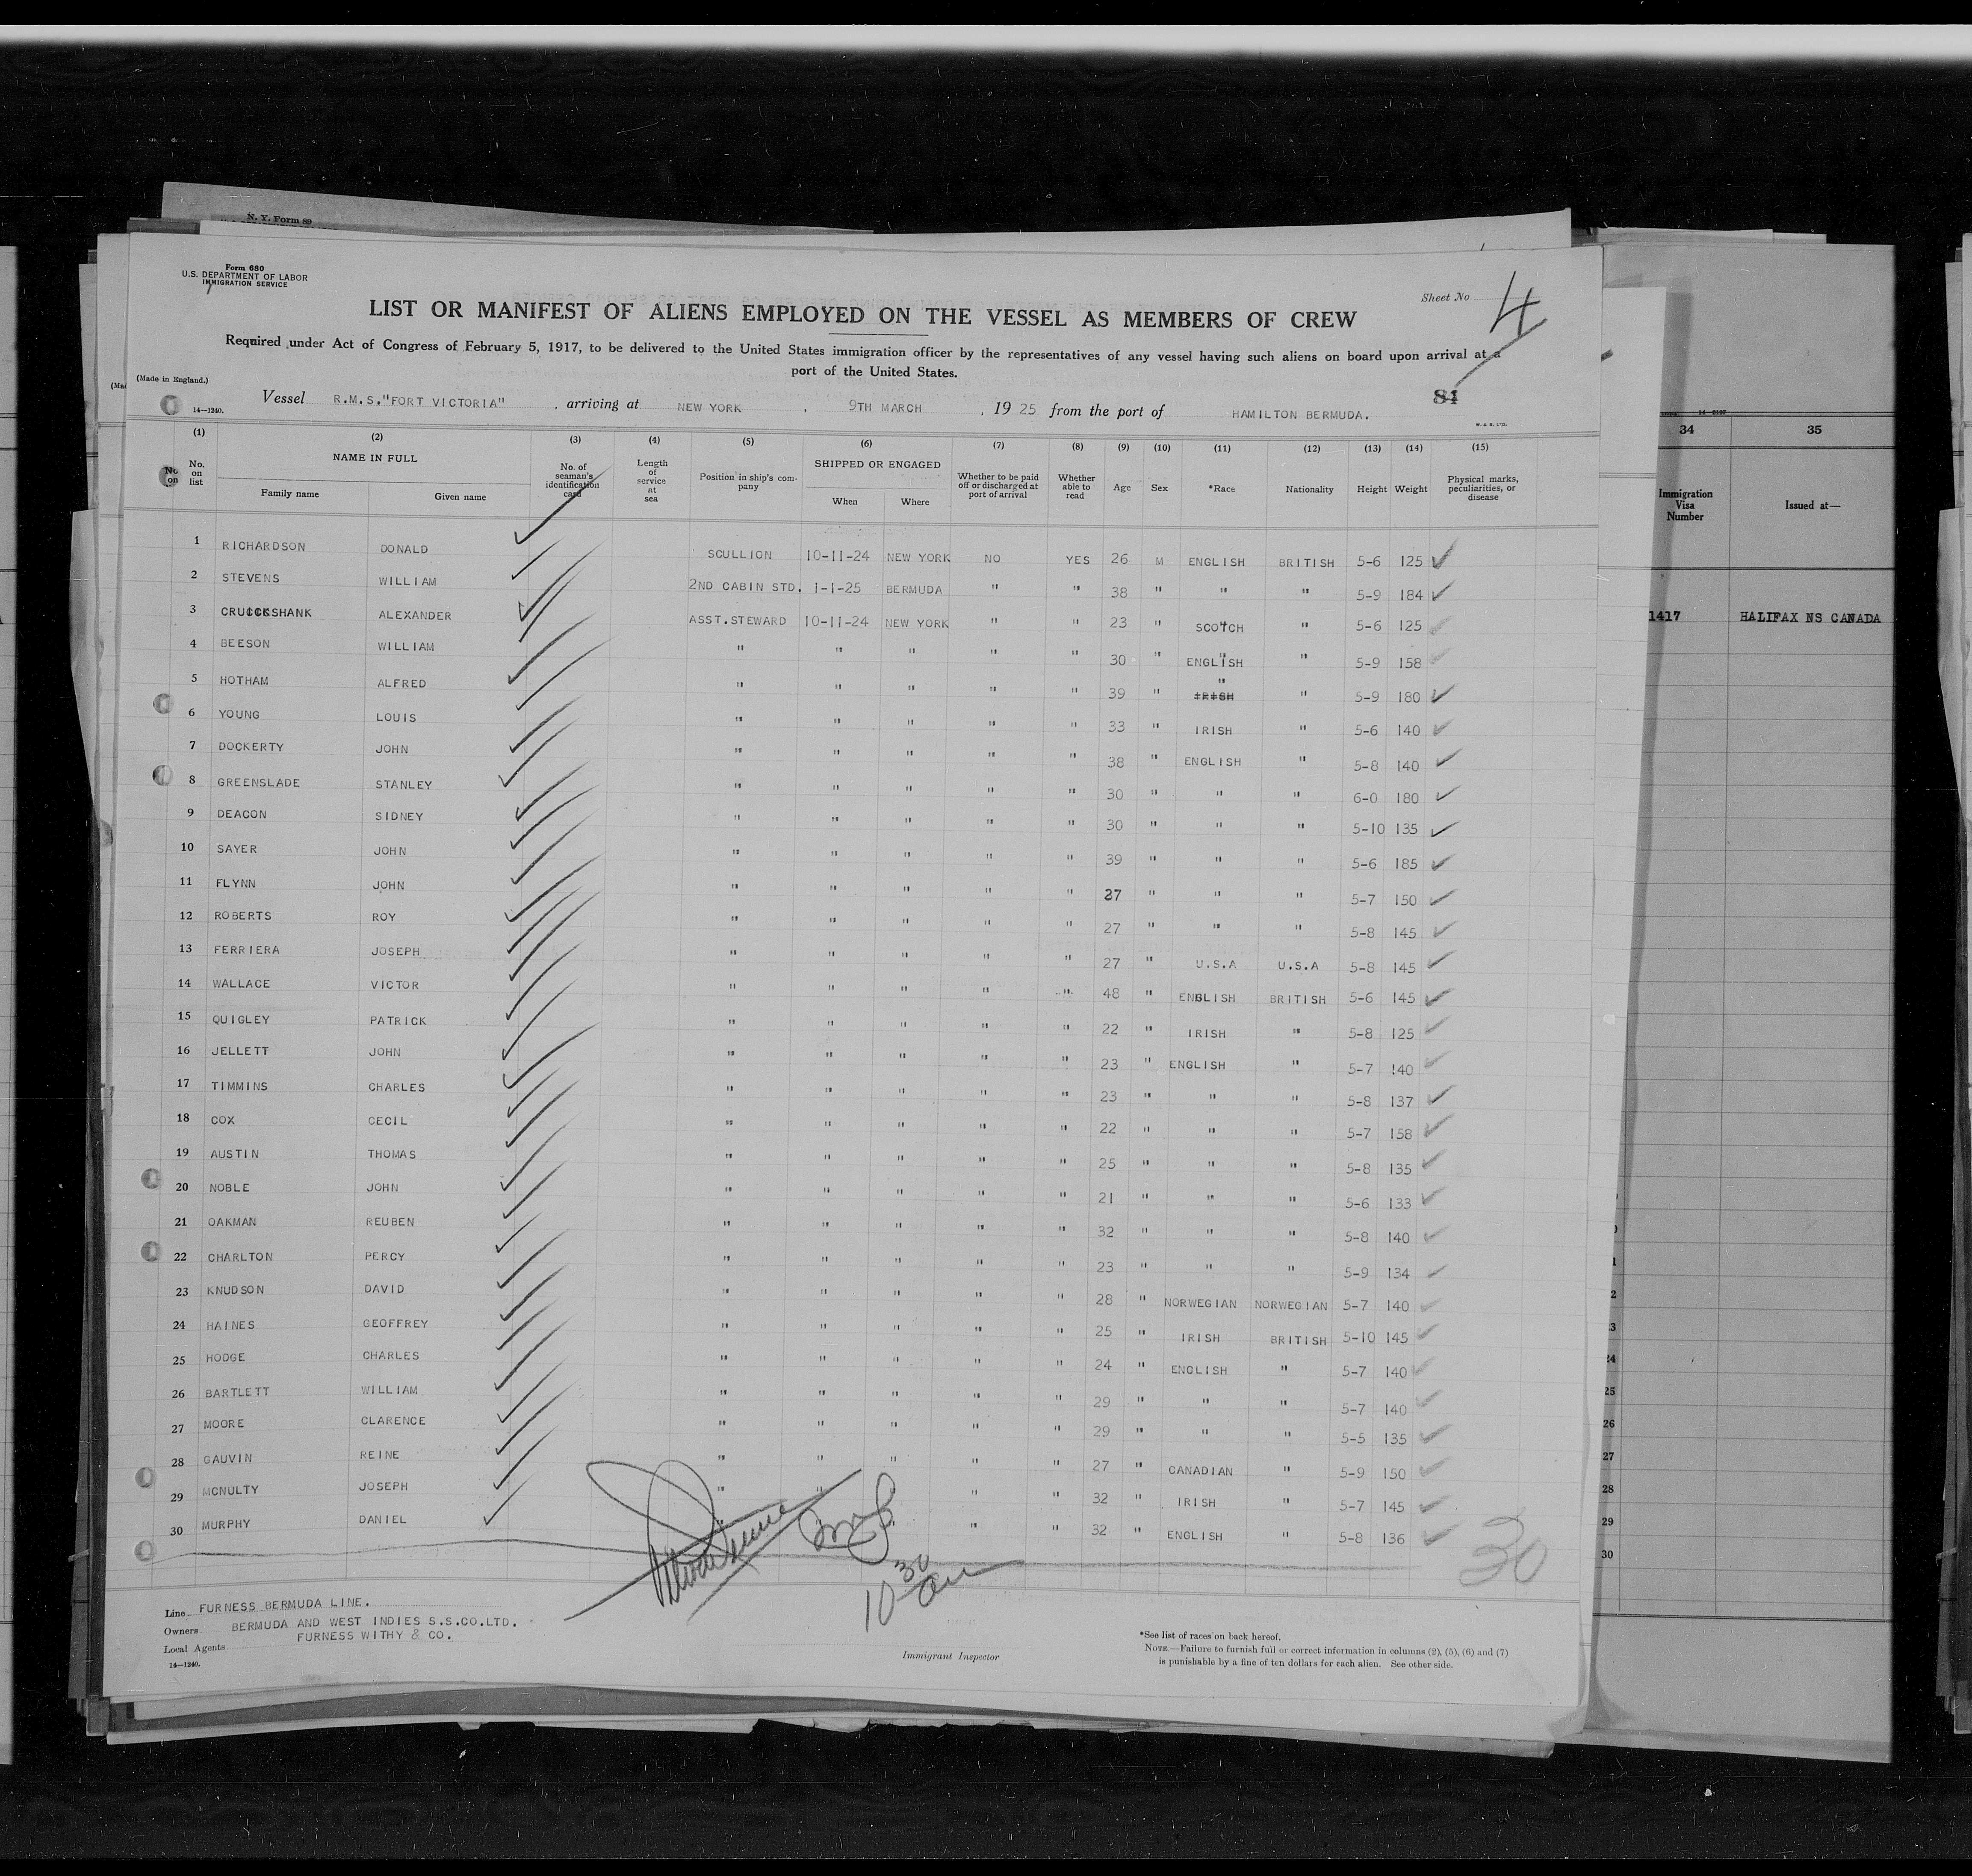 N. Y. Form 89
Form 680
U.S. DEPARTMENT OF LABOR
IMMIGRATION SERVICE
Sheet No. 4
LIST OR MANIFEST OF ALIENS EMPLOYED ON THE VESSEL AS MEMBERS OF CREW
Required under Act of Congress of February 5, 1917, to be delivered to the United States immigration officer by the representatives of any vessel having such aliens on board upon arrival at a
port of the United States.
(Made in England.)
84
14—1240.
Vessel R.M.S."FORT VICTORIA", arriving at NEW YORK, 9TH MARCH, 1925 from the port of HAMILTON BERMUDA.
W. & S. LTD.
(1) (2) (3) (4) (5) (6) (7) (8) (9) (10) (11) (12) (13) (14) (15)
No. on list NAME IN FULL Family name Given name No. of seaman's identification card Length of service at sea Position in ship's company SHIPPED OR ENGAGED When Where Whether to be paid off or discharged at port of arrival Whether able to read Age Sex *Race Nationality Height Weight Physical marks, peculiarities, or disease
1 RICHARDSON DONALD SCULLION 10-11-24 NEW YORK NO YES 26 M ENGLISH BRITISH 5-6 125
2 STEVENS WILLIAM 2ND CABIN STD. 1-1-25 BERMUDA " " 38 " " " 5-9 184
3 CRUICKSHANK ALEXANDER ASST.STEWARD 10-11-24 NEW YORK " " 23 " SCOTCH " 5-6 125
4 BEESON WILLIAM " " " " " 30 " ENGLISH " 5-9 158
5 HOTHAM ALFRED " " " " " 39 " " IRISH " 5-9 180
6 YOUNG LOUIS " " " " " 33 " IRISH " 5-6 140
7 DOCKERTY JOHN " " " " " 38 " ENGLISH " 5-8 140
8 GREENSLADE STANLEY " " " " " 30 " " " 6-0 180
9 DEACON SIDNEY " " " " " 30 " " " 5-10 135
10 SAYER JOHN " " " " " 39 " " " 5-6 185
11 FLYNN JOHN " " " " " 27 " " " 5-7 150
12 ROBERTS ROY " " " " " 27 " " " 5-8 145
13 FERRIERA JOSEPH " " " " " 27 " U.S.A U.S.A 5-8 145
14 WALLACE VICTOR " " " " " 48 " ENGLISH BRITISH 5-6 145
15 QUIGLEY PATRICK " " " " " 22 " IRISH " 5-8 125
16 JELLETT JOHN " " " " " 23 " ENGLISH " 5-7 140
17 TIMMINS CHARLES " " " " " 23 " " " 5-8 137
18 COX CECIL " " " " " 22 " " " 5-7 158
19 AUSTIN THOMAS " " " " " 25 " " " 5-8 135
20 NOBLE JOHN " " " " " 21 " " " 5-6 133
21 OAKMAN REUBEN " " " " " 32 " " " 5-8 140
22 CHARLTON PERCY " " " " " 23 " " " 5-9 134
23 KNUDSON DAVID " " " " " 28 " NORWEGIAN NORWEGIAN 5-7 140
24 HAINES GEOFFREY " " " " " 25 " IRISH BRITISH 5-10 145
25 HODGE CHARLES " " " " " 24 " ENGLISH " 5-7 140
26 BARTLETT WILLIAM " " " " " 29 " " " 5-7 140
27 MOORE CLARENCE " " " " " 29 " " " 5-5 135
28 GAUVIN REINE " " " " " 27 " CANADIAN " 5-9 150
29 MCNULTY JOSEPH " " " " " 32 " IRISH " 5-7 145
30 MURPHY DANIEL " " " " " 32 " ENGLISH " 5-8 136
30
10 30 am
Line FURNESS BERMUDA LINE.
Owners BERMUDA AND WEST INDIES S.S.CO.LTD.
Local Agents FURNESS WITHY & CO.
14—1240.
Immigrant Inspector
*See list of races on back hereof.
NOTE.—Failure to furnish full or correct information in columns (2), (5), (6) and (7)
is punishable by a fine of ten dollars for each alien. See other side.
34 35
Immigration Visa Number Issued at—
1417 HALIFAX NS CANADA
24
25
26
27
28
29
30